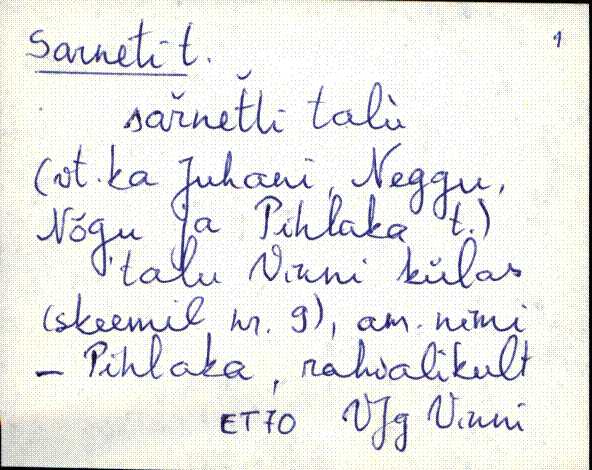 Sarneti t. 1
sařnet̆ti talù
(vt. ka Juhani, Neggu,
Nõgu ja Pihlaka t.)
talu Vinni külas
(skeemil nr. 9), am. nimi
– Pihlaka, rahvalikult
ET70 VJg Vinni